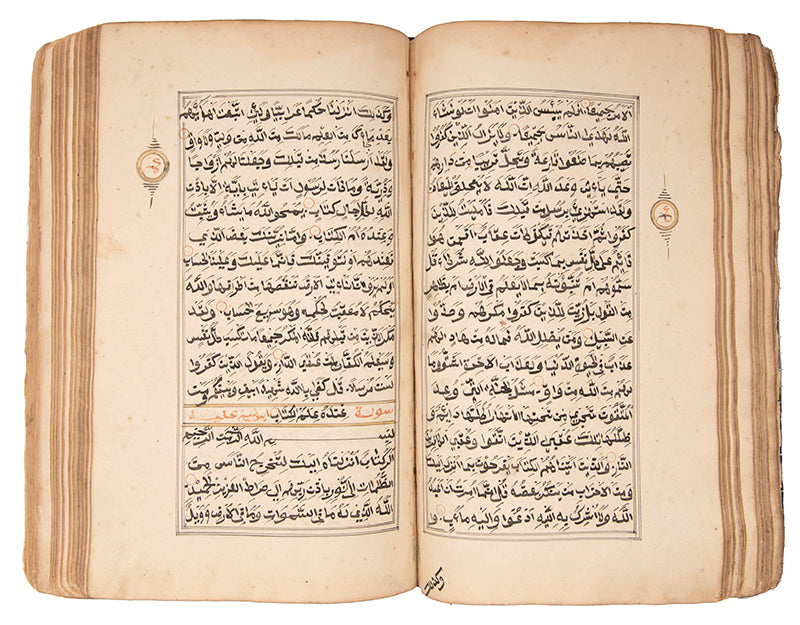 الامر جميعا افلم ييئس الذين امنوا ان لو يشاء
الله لهدى الناس جميعا ولا يزال الذين كفروا
تصيبهم بما صنعوا قارعة او تحل قريبا من دارهم
حتى ياتي وعد الله ان الله لا يخلف الميعاد
ولقد استهزئ برسل من قبلك فامليت للذين
كفروا ثم اخذتهم فكيف كان عقاب افمن هو
قائم على كل نفس بما كسبت وجعلوا لله شركاء قل
سموهم ام تنبئونه بما لا يعلم في الارض ام بظاهر
من القول بل زين للذين كفروا مكرهم وصدوا
عن السبيل ومن يضلل الله فما له من هاد لهم
عذاب في الحيوة الدنيا ولعذاب الاخرة اشق وما
لهم من الله من واق مثل الجنة التي وعد
المتقون تجري من تحتها الانهار اكلها دائم و
ظلها تلك عقبى الذين اتقوا وعقبى الكافرين
النار والذين اتيناهم الكتاب يفرحون بما انزل اليك
ومن الاحزاب من ينكر بعضه قل انما امرت ان اعبد
الله ولا اشرك به اليه ادعوا واليه ماب
وكذلك
وكذلك انزلناه حكما عربيا ولئن اتبعت اهواءهم
بعد ما جاءك من العلم مالك من الله من ولي ولا واق
ولقد ارسلنا رسلا من قبلك وجعلنا لهم ازواجا
وذرية وما كان لرسول ان ياتي باية الا باذن
الله لكل اجل كتاب يمحوا الله ما يشاء ويثبت
وعنده ام الكتاب واما نرينك بعض الذي
نعدهم او نتوفينك فانما عليك البلاغ وعلينا الحساب
اولم يروا انا ناتي الارض ننقصها من اطرافها والله
يحكم لا معقب لحكمه وهو سريع الحساب وقد
مكر الذين من قبلهم فلله المكر جميعا يعلم ما تكسب كل نفس
وسيعلم الكفار لمن عقبى الدار ويقول الذين كفروا
لست مرسلا قل كفى بالله شهيدا بيني وبينكم ومن
سورة عنده علم الكتاب ابراهيم
بسم الله الرحمن الرحيم
الر كتاب انزلناه اليك لتخرج الناس من
الظلمات الى النور باذن ربهم الى صراط العزيز الحميد
الله الذي له ما في السموات وما في الارض وويل